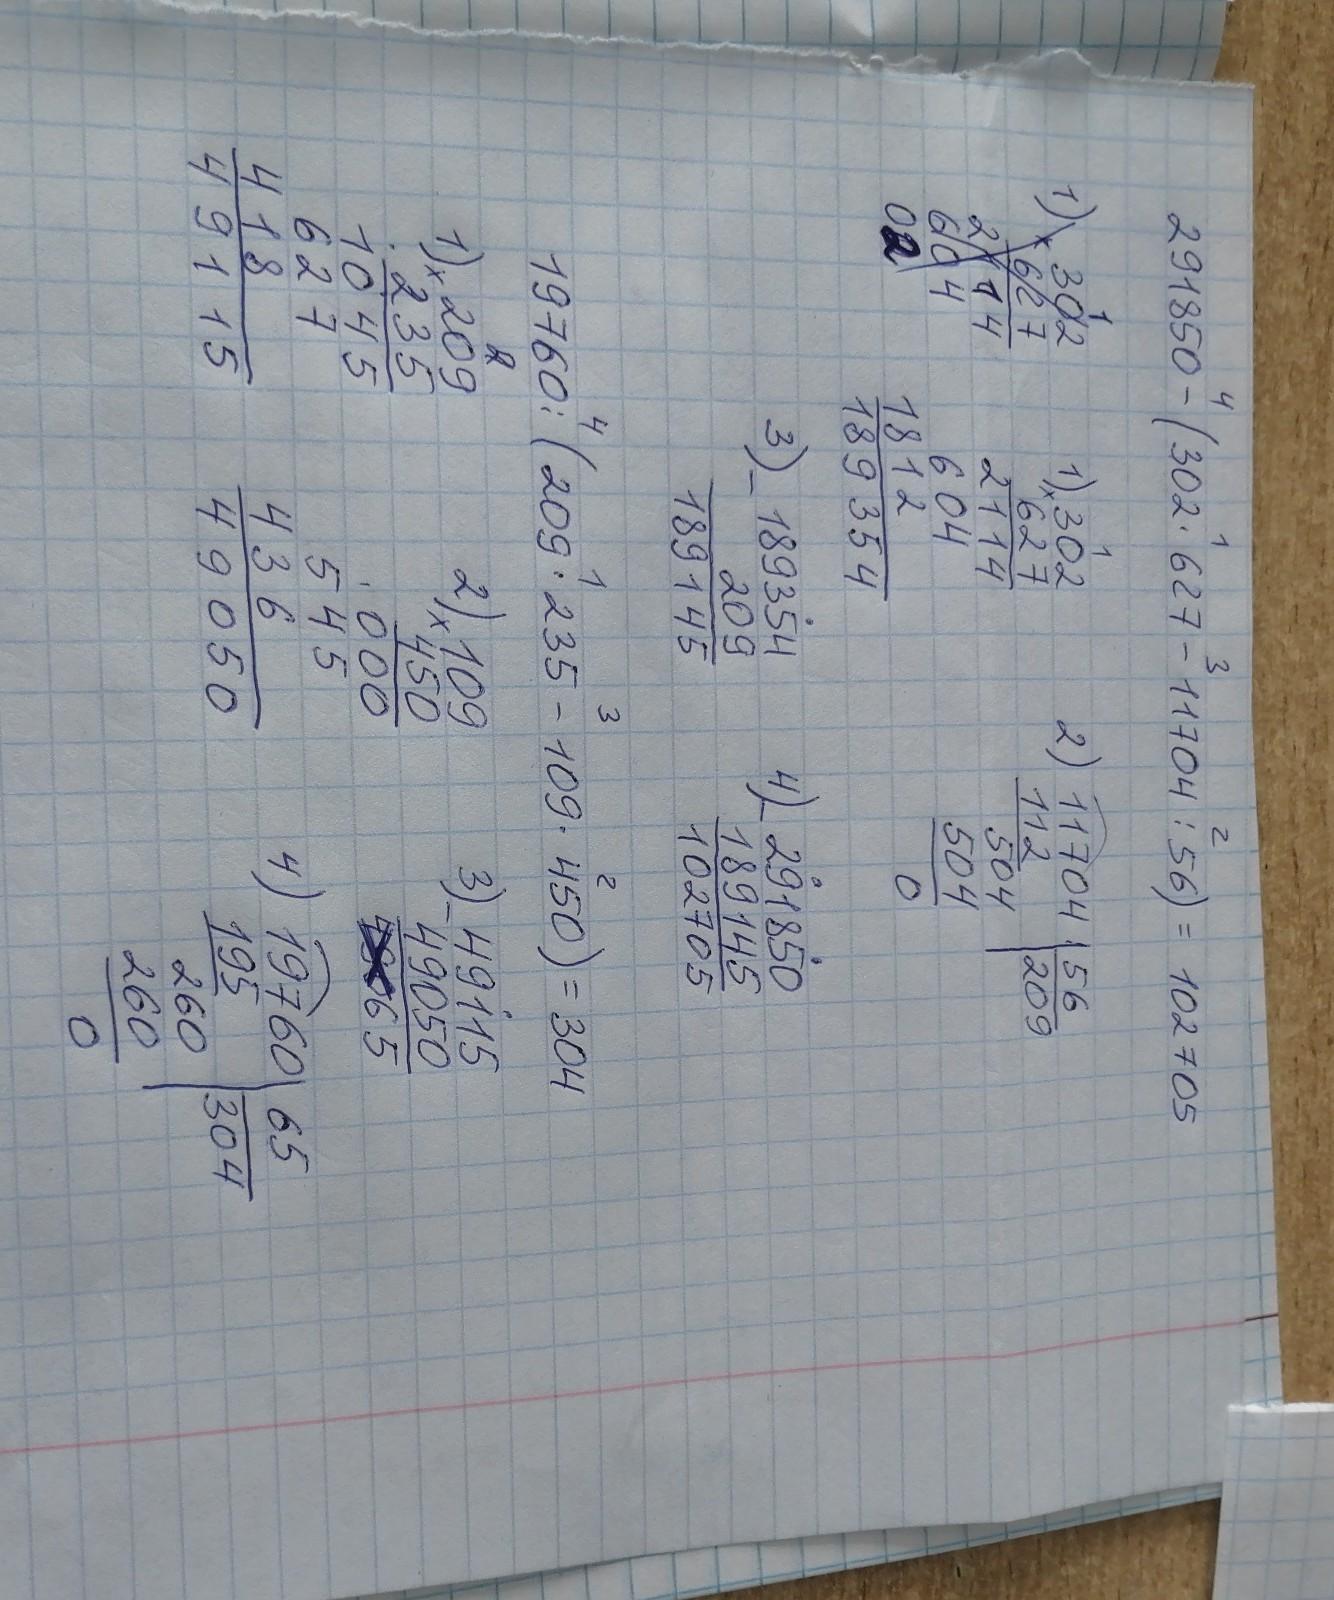 4 1 3 2
291850 - (302 · 627 - 11704 : 56) = 102705
1
1) × 302
627
2114
604
02
1
1) × 302
627
2114
604
1812
189354
2) 11704 | 56
112 | 209
504
504
0
3) - 189354
209
189145
4) - 291850
189145
102705
4 1 3 2
19760 : (209 · 235 - 109 · 450) = 304
2
1) × 209
235
1045
627
418
49115
2) × 109
450
000
545
436
49050
3) - 49115
49050
65
4) 19760 | 65
195 | 304
260
260
0